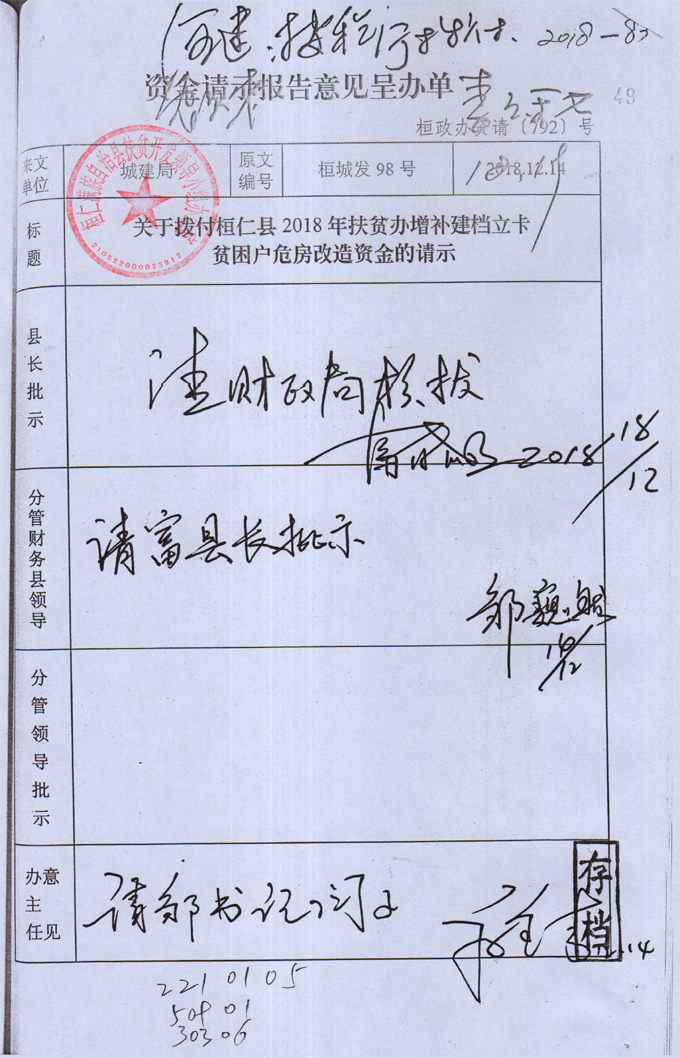 2018-83
资金请示报告意见呈办单
49
桓政办资请〔792〕号
来文单位
城建局
原文编号
桓城发 98 号
2018.12.14
桓仁满族自治县扶贫开发领导小组办公室
210522000023917
标题
关于拨付桓仁县 2018 年扶贫办增补建档立卡
贫困户危房改造资金的请示
县长批示
请财政局核拨
2018 18/12
分管财务县领导
请富县长批示
邹
18/12
分管领导批示
办主任意见
请邹书记阅示
存档
12.14
221 01 05
509 01
303 06